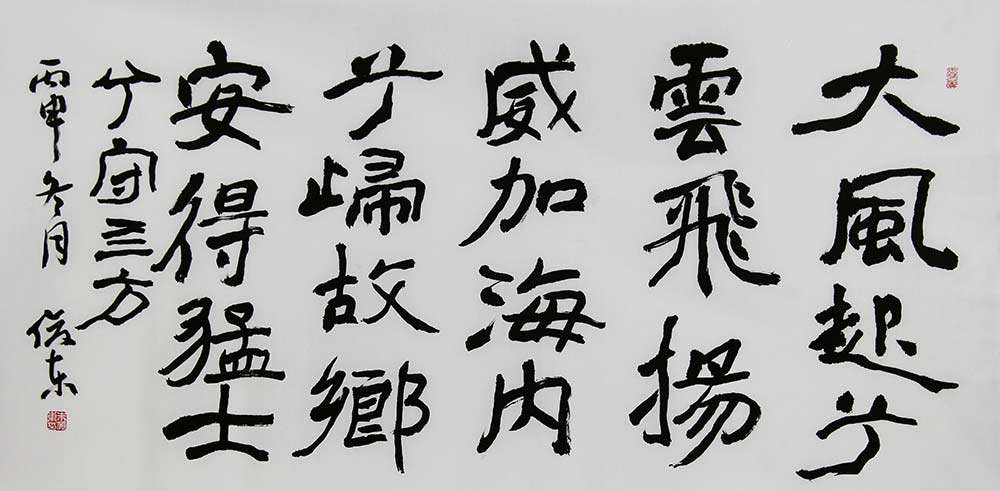 大風起兮
雲飛揚
威加海内
兮歸故鄉
安得猛士
兮守三方
丙申冬月 俊东